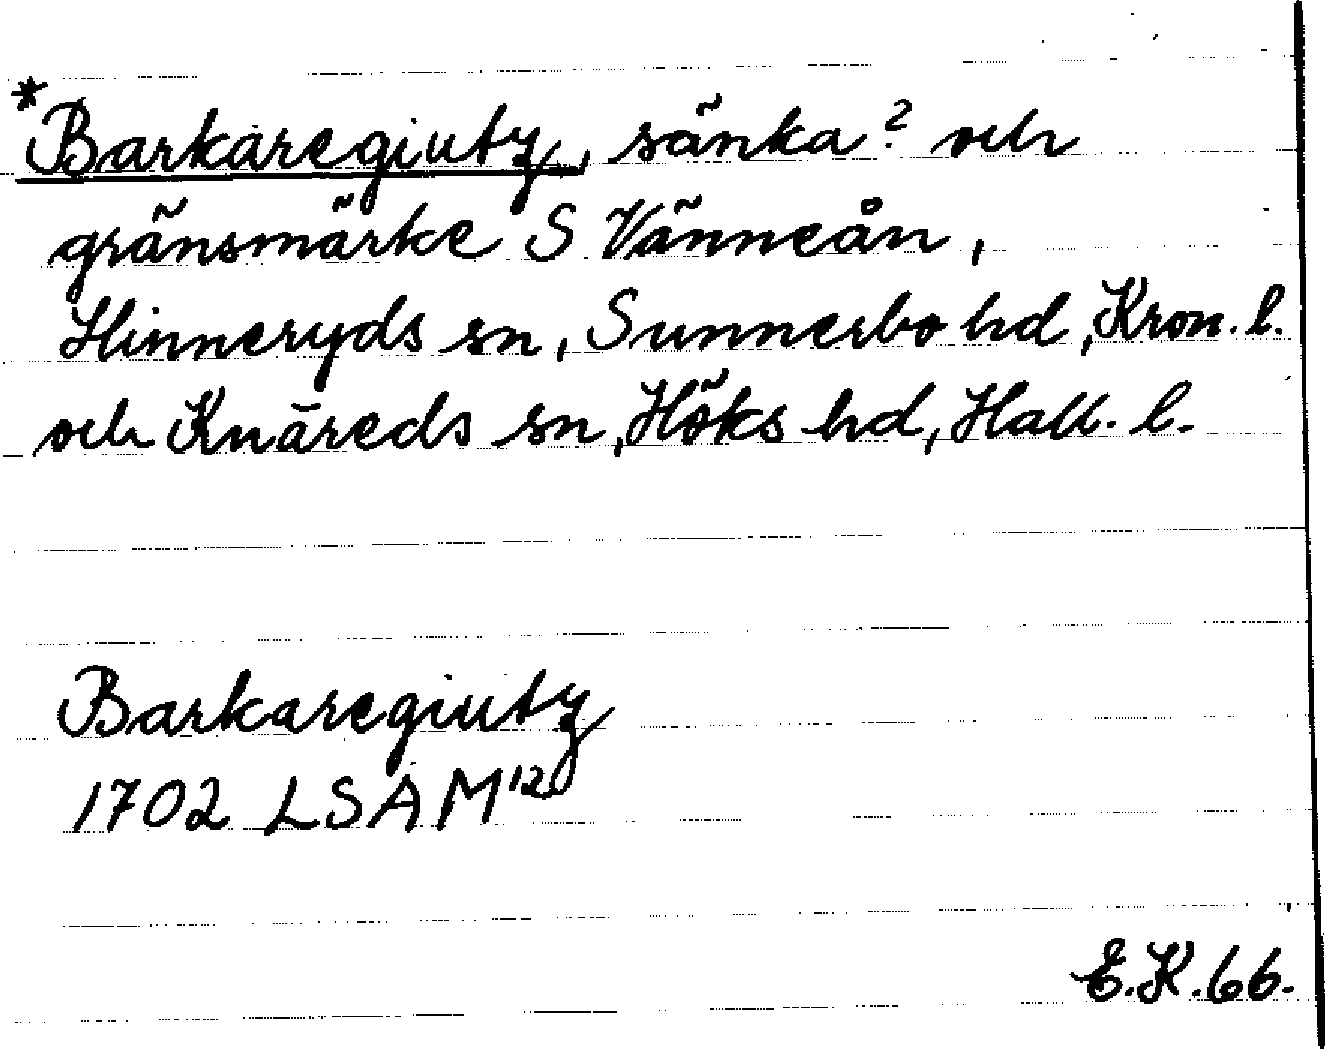 *Barkaregiuty, sänka? och
gränsmärke S Vänneån,
Hinneryds sn, Sunnerbo hd, Kron. l.
och Knäreds sn, Höks hd, Hall. l.
Barkaregiuty
1702 LSA M12
E.K.66.